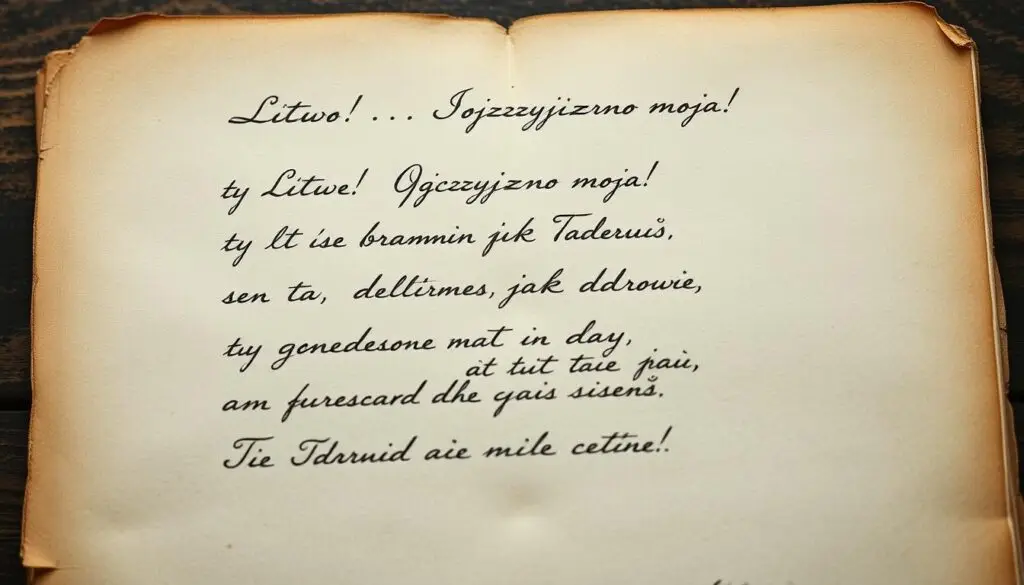 Litwo! ... Jojzzzyjizrno moja!
ty Litwe! Ojczzyjzno moja!
ty lt íse bramnin jik Taderuiš.
sen ta, deltirmes, jak ddrowie,
tuy genedesone mat in day,
at tut taie paii,
am furescard dhe gais sisenš.
Tie Tdrruid aie mile cetine!.